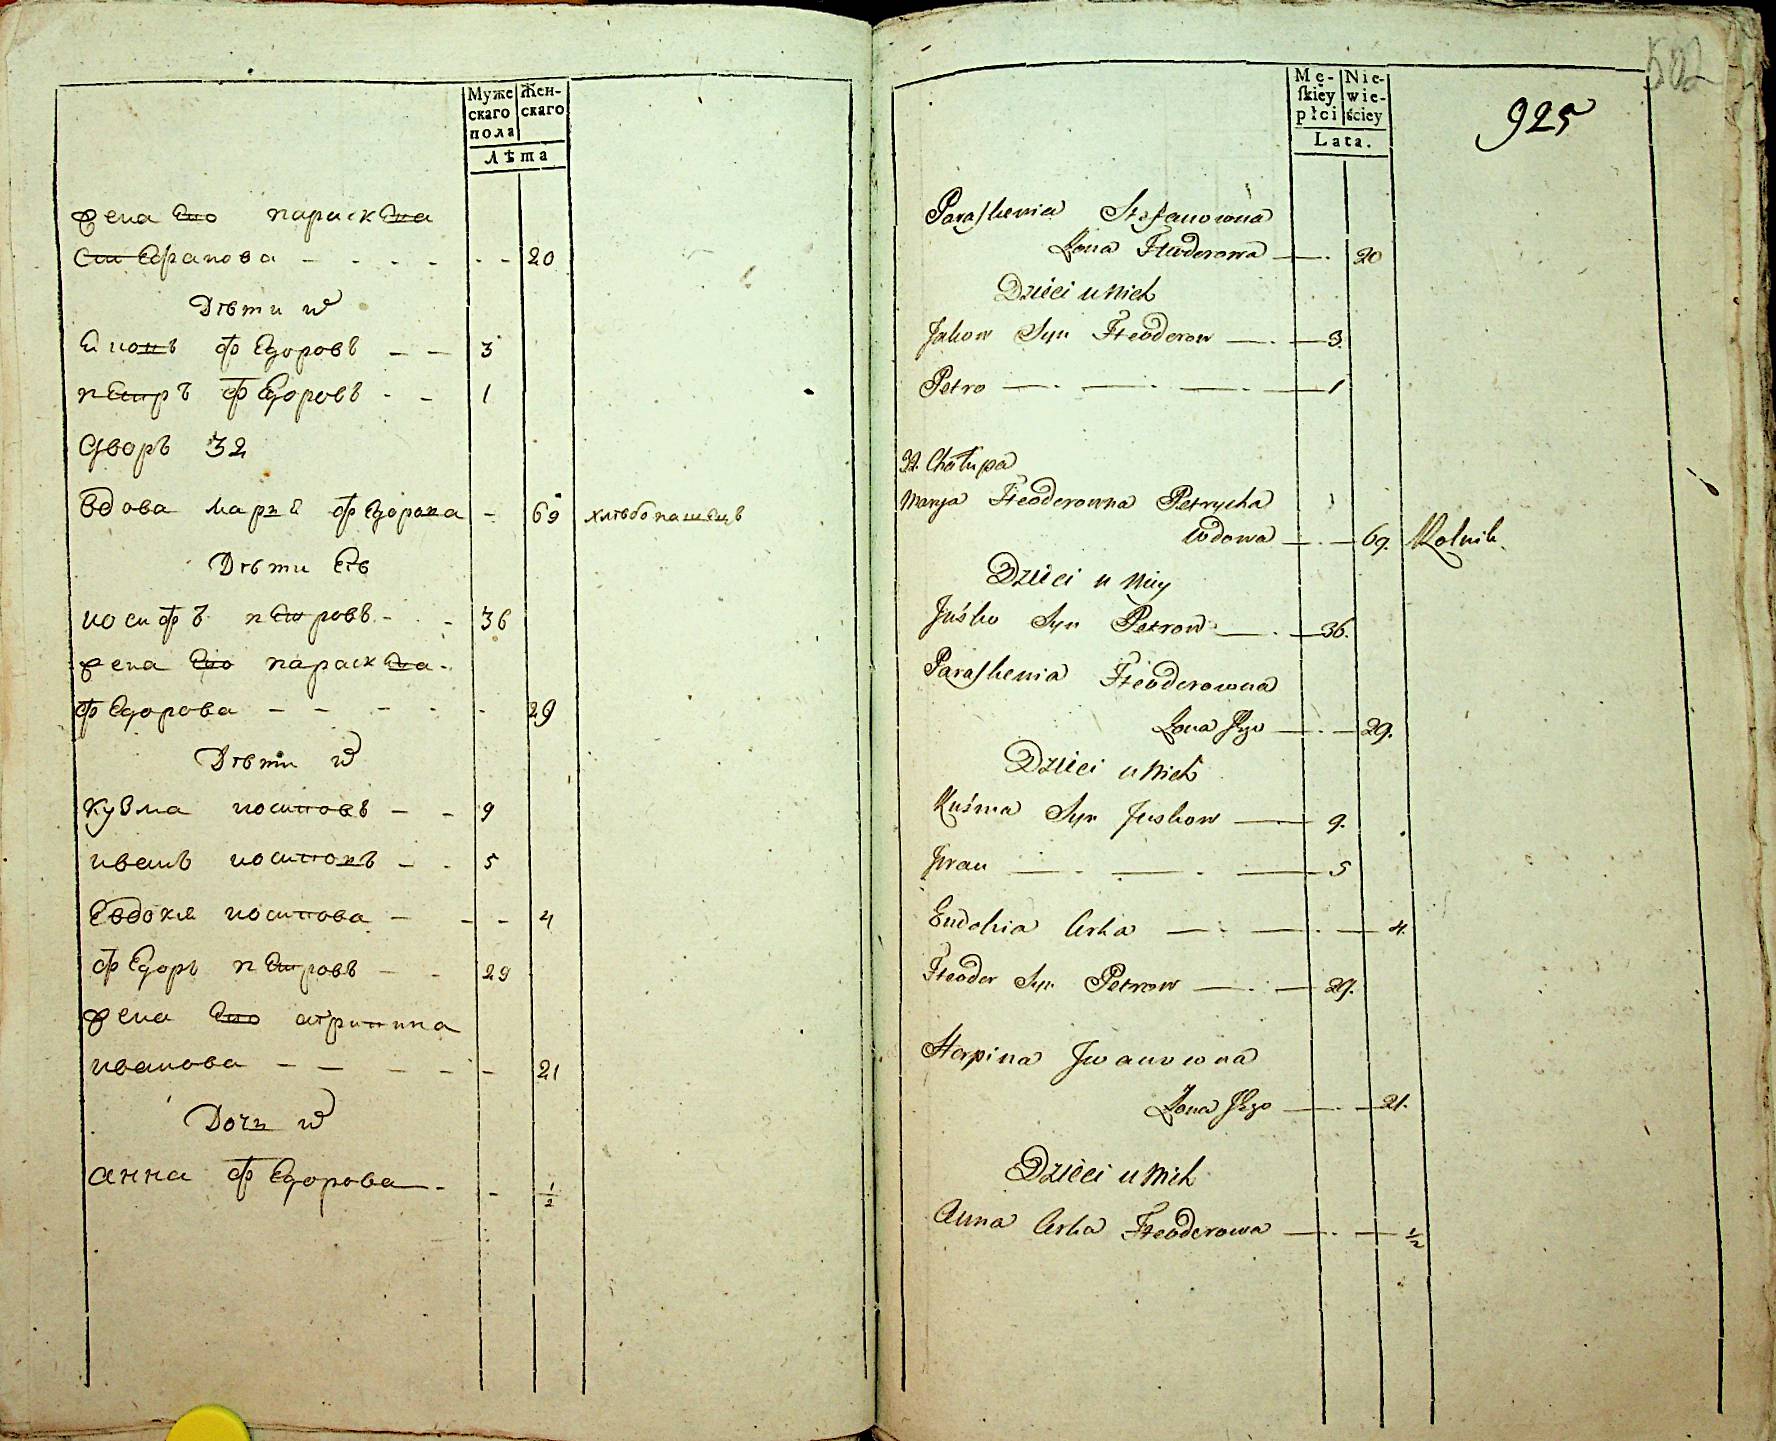 Муже
скаго
пола
Жен-
скаго
Лѣта
жена Его параскЕва
СтЕфанова - - - - - - 20
Дѣти ихъ
Якимъ ФЕдоровъ - - 3
пЕтръ ФЕдоровъ - - 1
Дворъ 32
Вдова Мария ФЕдорова - 69 хлѣбопашЕцъ
Дѣти Еѣ
иосифъ пЕтровъ - - 36
жена Его параскЕва -
ФЕдорова - - - - - 29
Дѣти ихъ
кузма иосиповъ - - 9
иванъ иосиповъ - - 5
Евдокия иосипова - - - 4
ФЕдоръ пЕтровъ - - 29
жена Его агрипина
иванова - - - - - 21
Дочь ихъ
анна ФЕдорова - - 1/2
Mę-
skiey
płci
Nie-
wie-
ściey
Lata.
502
925
Paraskewia Stefanowna
Żona Fteoderowa — 20
Dzieci u Nich
Jakow Syn Fteoderow — 3.
Petro — 1
32. Chałupa
Marya Fteoderowna Petrycha
Wdowa — 69. Rolnik.
Dzieci u Niey
Juśko Syn Petrow — 36.
Paraskewia Fteoderowna
Żona Jego — 29.
Dzieci u Nich
Kuśma Syn Juskow — 9.
Jwan — 5
Eudokia Corka — 4.
Fteoder Syn Petrow — 29.
Horpina Jwanowna
Żona Jego — 21.
Dzieci u Nich
Anna Corka Fteoderowa — 1/2